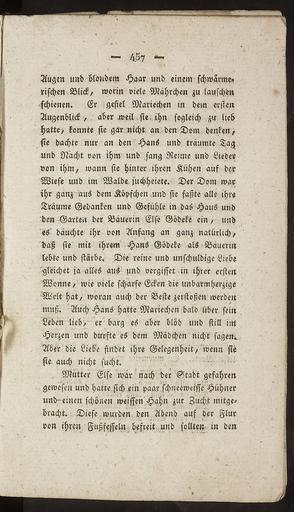 — 457 —
Augen und blondem Haar und einem schwärme-
rischen Blick, worin viele Mährchen zu lauschen
schienen. Er gefiel Mariechen in dem ersten
Augenblick, aber weil sie ihn sogleich zu lieb
hatte, konnte sie gar nicht an den Dom denken,
sie dachte nur an den Hans und träumte Tag
und Nacht von ihm und sang Reime und Lieder
von ihm, wann sie hinter ihren Kühen auf der
Wiese und im Walde juchheiete. Der Dom war
ihr ganz aus dem Köpfchen und sie faßte alle ihre
Träume Gedanken und Gefühle in das Haus und
den Garten der Bäuerin Else Gödeke ein, und
es däuchte ihr von Anfang an ganz natürlich,
daß sie mit ihrem Hans Gödeke als Bäuerin
lebte und stärbe. Die reine und unschuldige Liebe
gleichet ja alles aus und vergisset in ihrer ersten
Wonne, wie viele scharfe Ecken die unbarmherzige
Welt hat, woran auch der Beste zerstoßen werden
muß. Auch Hans hatte Mariechen bald über sein
Leben lieb, er barg es aber blöd und still im
Herzen und durfte es dem Mädchen nicht sagen.
Aber die Liebe findet ihre Gelegenheit, wenn sie
sie auch nicht sucht.
Mutter Else war nach der Stadt gefahren
gewesen und hatte sich ein paar schneeweisse Hühner
und einen schönen weissen Hahn zur Zucht mitge-
bracht. Diese wurden den Abend auf der Flur
von ihren Fußfesseln befreit und sollten in den